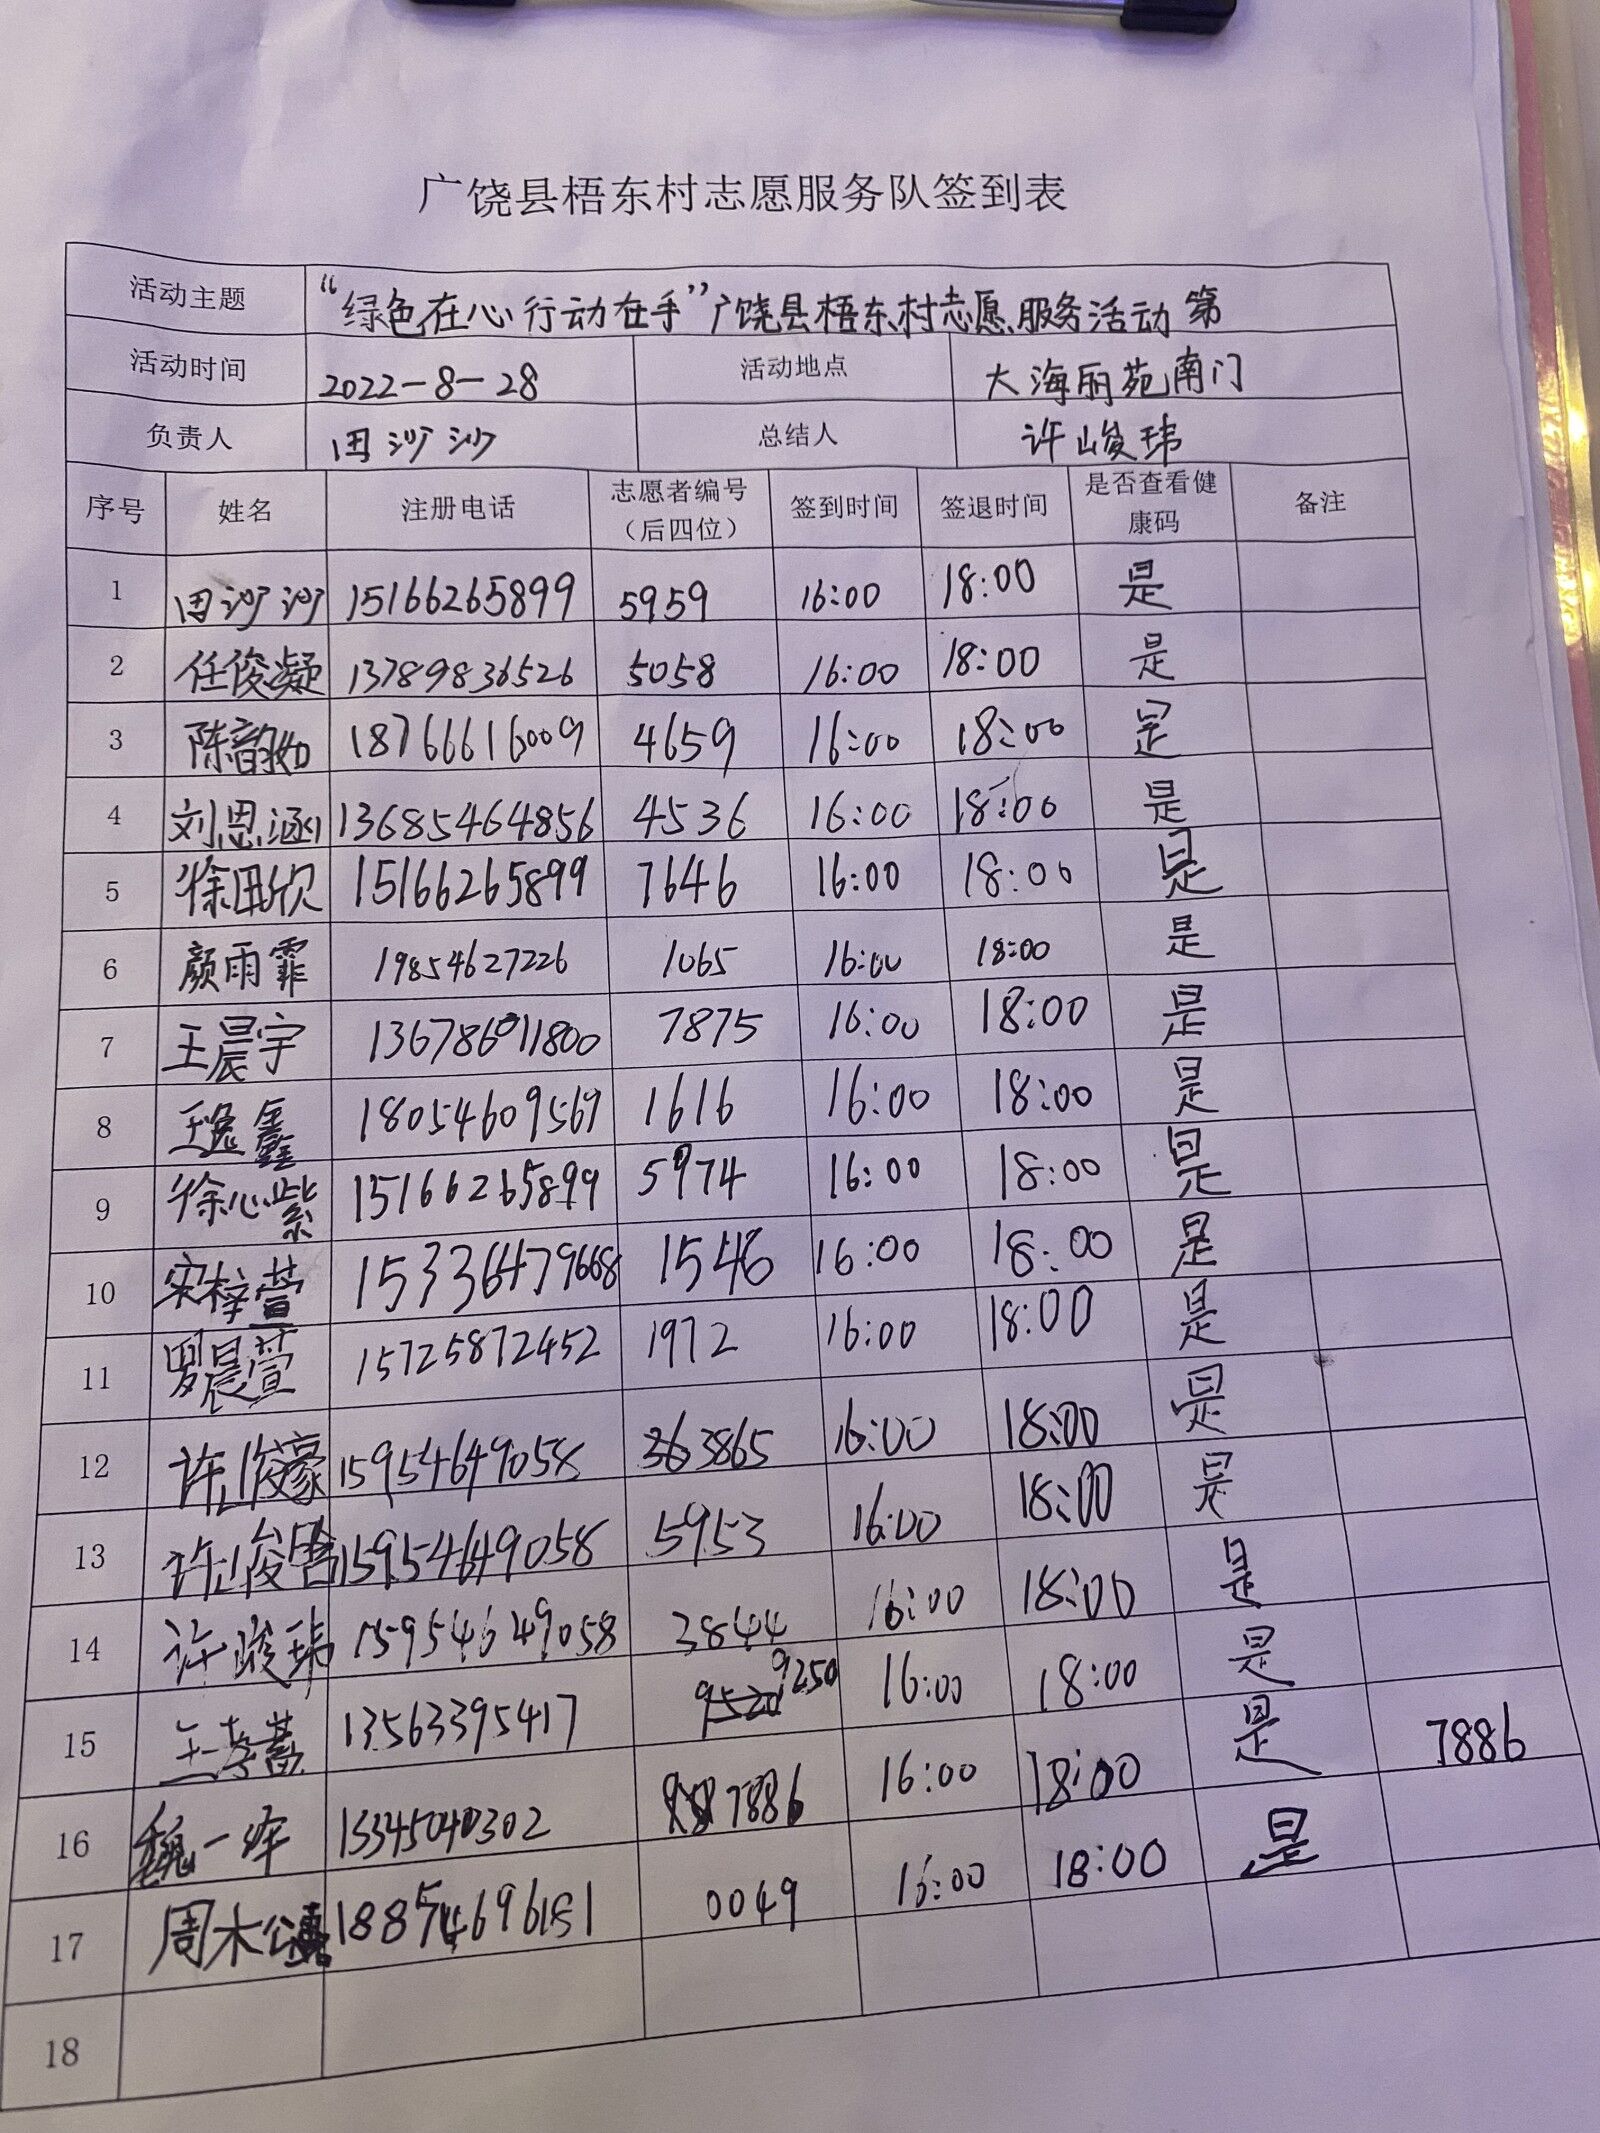 广饶县梧东村志愿服务队签到表
活动主题 “绿色在心 行动在手”广饶县梧东村志愿服务活动 第
活动时间 2022-8-28 活动地点 大海丽苑南门
负责人 田沙沙 总结人 许峻玮
序号 姓名 注册电话 志愿者编号（后四位） 签到时间 签退时间 是否查看健康码 备注
1 田沙沙 15166265899 5959 16:00 18:00 是
2 任俊凝 13789836526 5058 16:00 18:00 是
3 陈韵如 18766616009 4659 16:00 18:00 是
4 刘恩涵 13685464856 4536 16:00 18:00 是
5 徐田欣 15166265899 7646 16:00 18:00 是
6 颜雨霏 19854627226 1065 16:00 18:00 是
7 王晨宇 13678611800 7875 16:00 18:00 是
8 王逸鑫 18054609569 1616 16:00 18:00 是
9 徐心紫 15166265899 5974 16:00 18:00 是
10 宋梓萱 15336479668 1546 16:00 18:00 是
11 罗晨萱 15725872452 1972 16:00 18:00 是
12 许峻豪 15954649058 3865 16:00 18:00 是
13 许峻晗 15954649058 5953 16:00 18:00 是
14 许峻玮 15954649058 3844 16:00 18:00 是
15 王 13563395417 9250 16:00 18:00 是
16 魏一 15345040302 7886 16:00 18:00 是 7886
17 周木 18854696151 0049 16:00 18:00 是
18